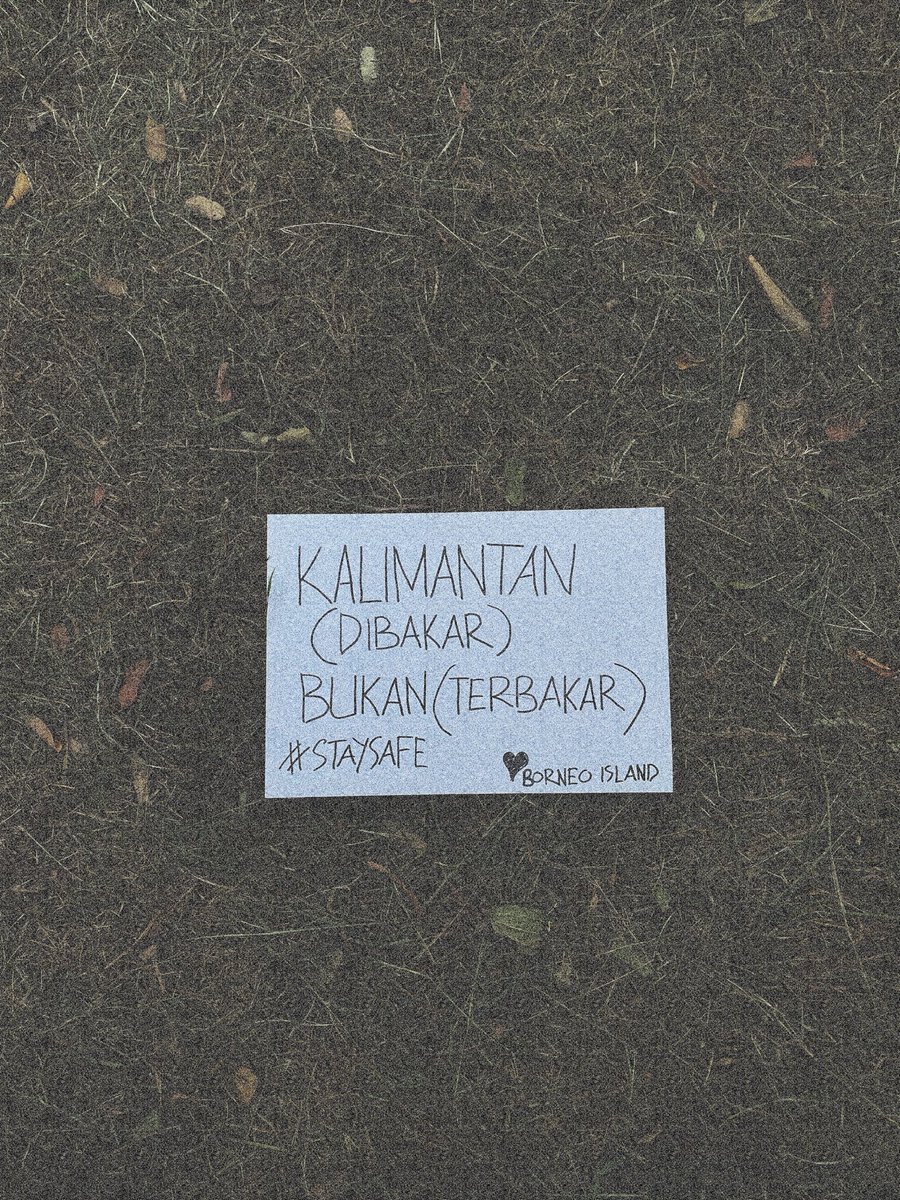 KALIMANTAN
(DIBAKAR)
BUKAN (TERBAKAR)
#STAYSAFE
♥BORNEO ISLAND